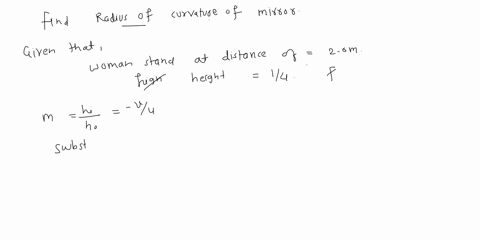 find Radius of curvature of mirror.
Given that,
woman stand at distance of = 2.0m.
high height = 1/4. F
m = hi/ho = -v/u
subst